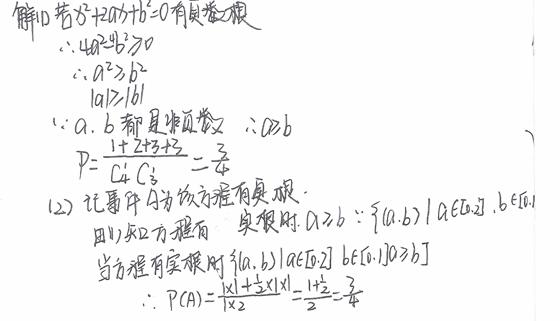 解(1) 若x²+2ax+b²=0有实数根
∴4a²-4b²≥0
∴a²≥b²
|a|≥|b|
∵a.b都是非负数 ∴a≥b
P=\frac{1+2+3+3}{C_4^1 C_3^1}=\frac{3}{4}
(2) 记事件A为"方程有实根.
由(1)知方程有 实根时.a≥b ∵{(a.b)|a∈[0.2].b∈[0.1
当方程有实根时{(a,b)|a∈[0.2] b∈[0.1]a≥b]
∴P(A)=\frac{1×1+\frac{1}{2}×1×1}{1×2}=\frac{1+\frac{1}{2}}{2}=\frac{3}{4}